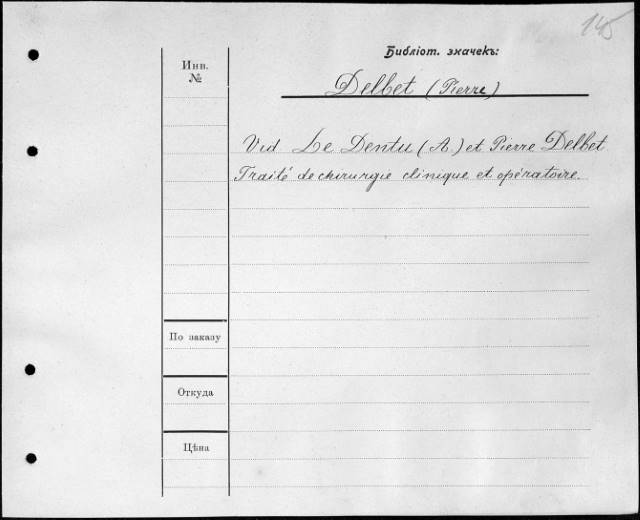 145
Библіот. значекъ:
Инв.
№
Delbet (Pierre)
Vid Le Dentu (A.) et Pierre Delbet
Traité de chirurgie clinique et opératoire.
По заказу
Откуда
Цѣна